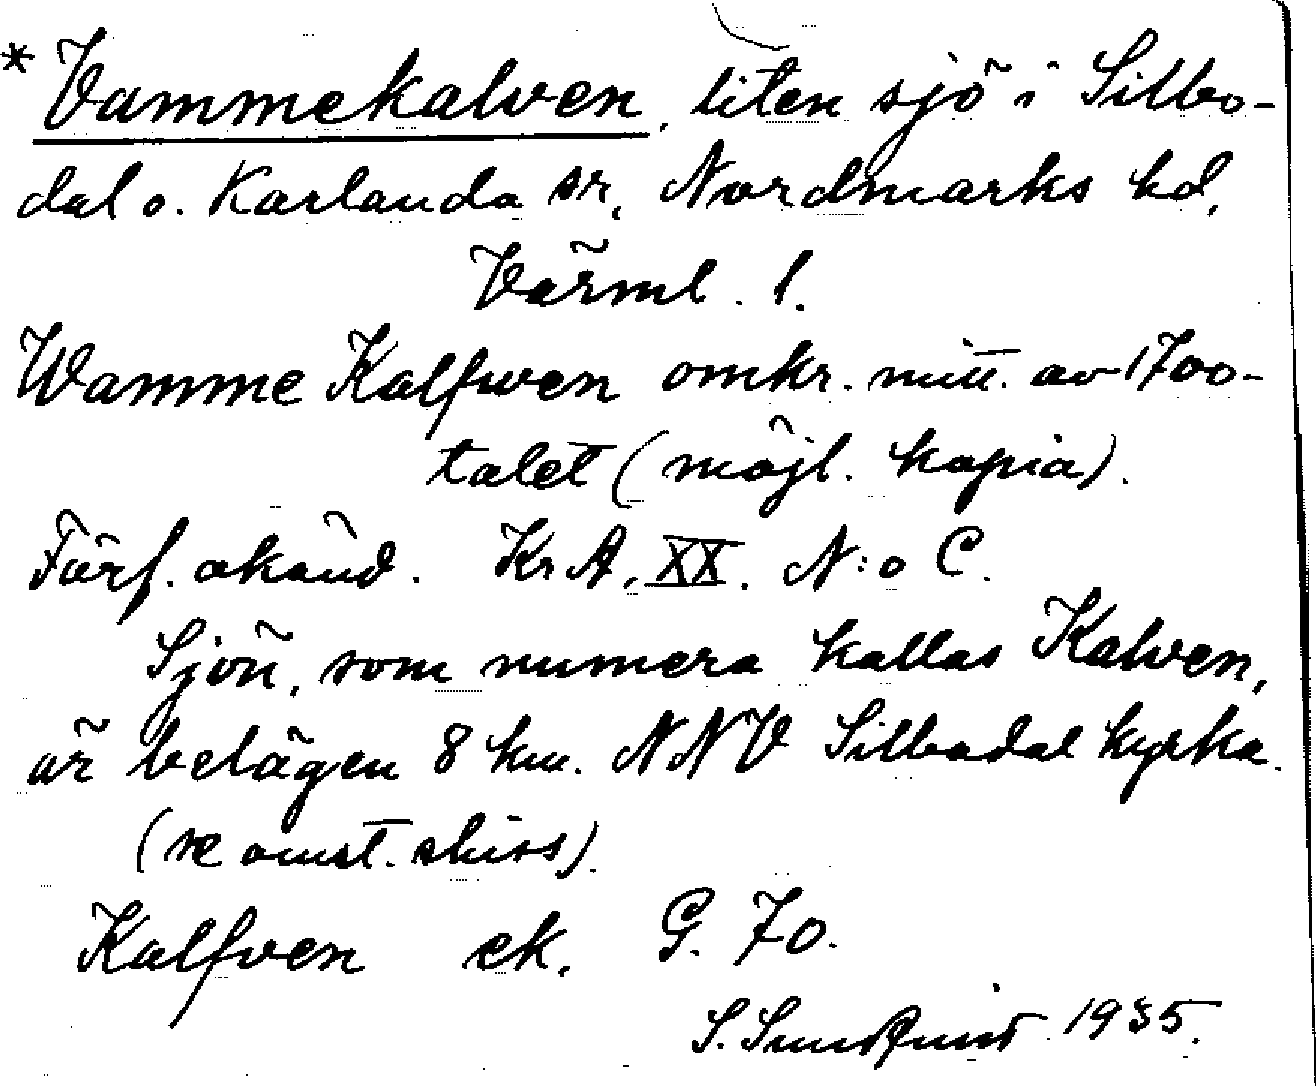 * Vammekalven, liten sjö i Silbo-
dal o. Karlanda sr, Nordmarks hd,
Värml. l.
Wamme Kalfwen omkr. mitt. av 1700-
talet (möjl. kopia).
Förf. okänd. KrA, XX. N:o C.
Sjön, som numera kallas Kalven,
är belägen 8 km. NNV Silbodal kyrka.
(se omst. skiss).
Kalfven ek. G. 70.
S. Sundquist 1935.